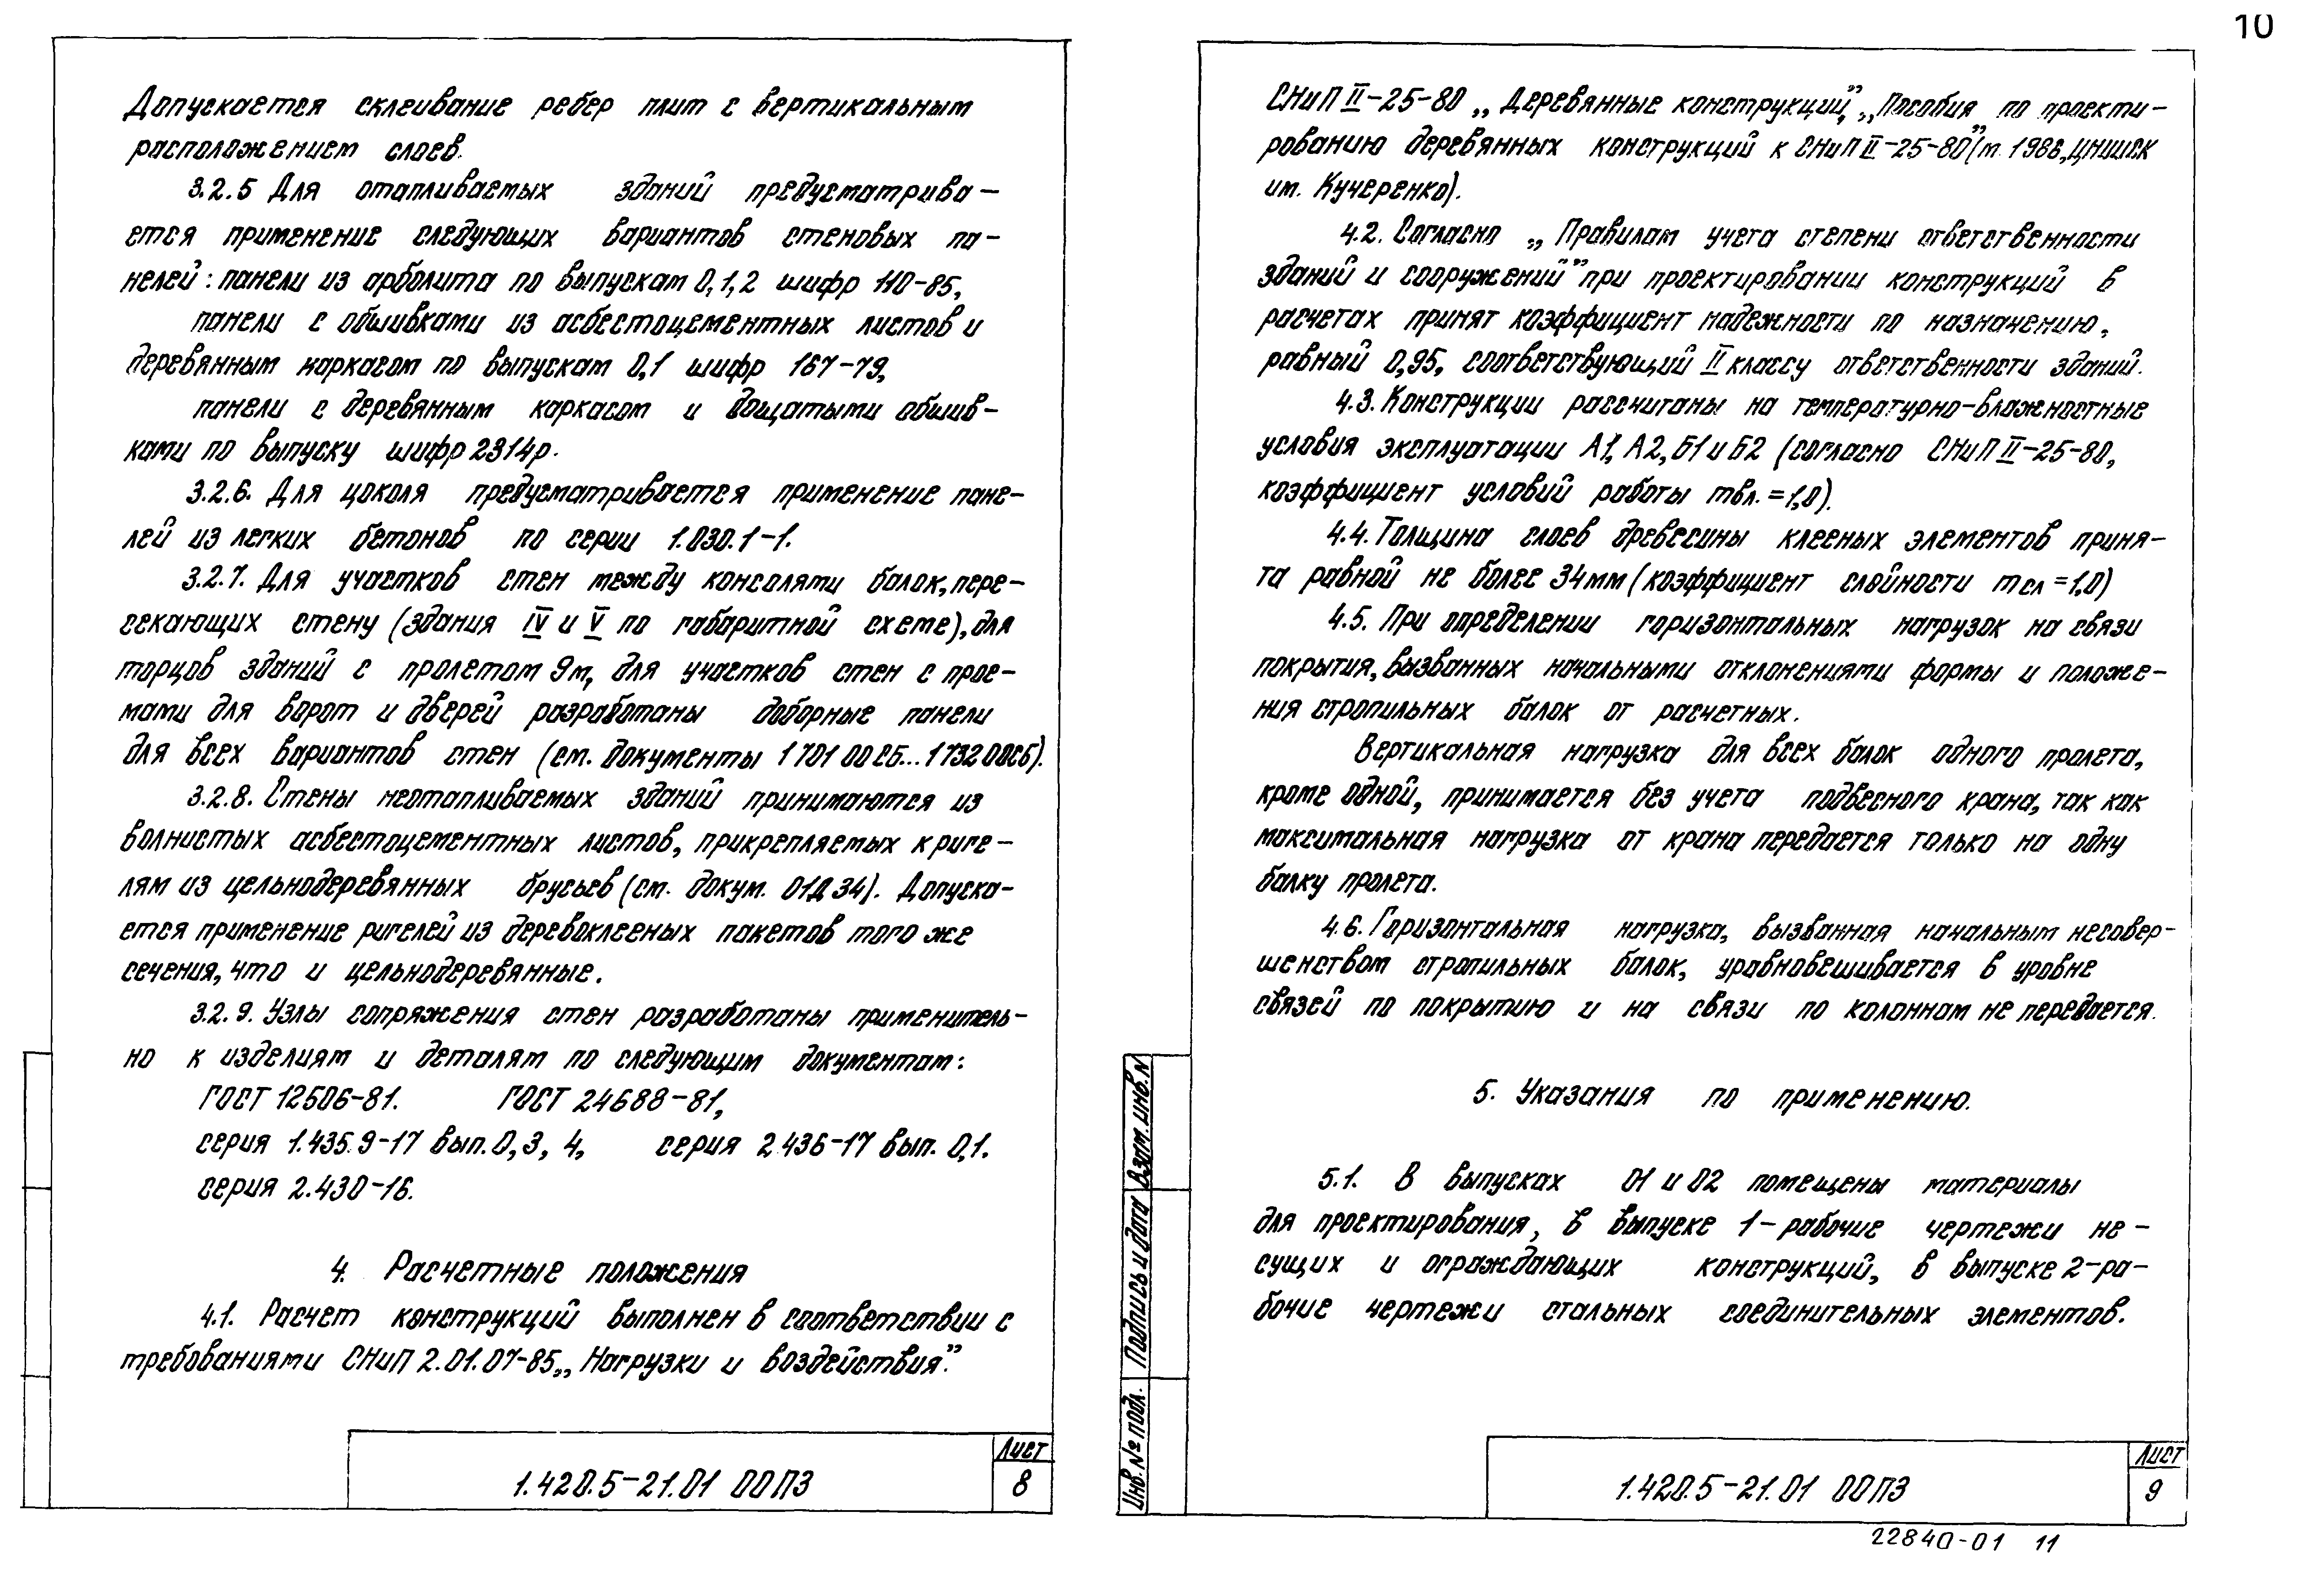 10
Допускается склеивание ребер плит с вертикальным
расположением слоев.
3.2.5 Для отапливаемых зданий предусматрива-
ется применение следующих вариантов стеновых па-
нелей: панели из арболита по выпускам 0,1,2 шифр 110-85,
панели с обшивками из асбестоцементных листов и
деревянным каркасом по выпускам 0,1 шифр 167-79,
панели с деревянным каркасом и дощатыми обшив-
ками по выпуску шифр 2314р.
3.2.6. Для цоколя предусматривается применение пане-
лей из легких бетонов по серии 1.030.1-1.
3.2.7. Для участков стен между консолями балок, пере-
секающих стену (здания IV и V по габаритной схеме), для
торцов зданий с пролетом 9м, для участков стен с прое-
мами для ворот и дверей разработаны доборные панели
для всех вариантов стен (см. документы 1701 00СБ...1732 00СБ).
3.2.8. Стены неотапливаемых зданий принимаются из
волнистых асбестоцементных листов, прикрепляемых к риге-
лям из цельнодеревянных брусьев (см. докум. 01Д34). Допуска-
ется применение ригелей из деревоклееных пакетов того же
сечения, что и цельнодеревянные.
3.2.9. Узлы сопряжения стен разработаны применитель-
но к изделиям и деталям по следующим документам:
ГОСТ 12506-81. ГОСТ 24688-81,
серия 1.435.9-17 вып. 0,3,4, серия 2.436-17 вып. 0,1.
серия 2.430-16.
4. Расчетные положения
4.1. Расчет конструкций выполнен в соответствии с
требованиями СНиП 2.01.07-85 „Нагрузки и воздействия”.
1.420.5-21.01 00ПЗ
Лист
8
СНиП II-25-80 „Деревянные конструкции”, „Пособия по проекти-
рованию деревянных конструкций к СНиП II-25-80” (м. 1986, ЦНИИСК
им. Кучеренко).
4.2. Согласно „Правилам учета степени ответственности
зданий и сооружений” при проектировании конструкций в
расчетах принят коэффициент надежности по назначению,
равный 0,95, соответствующий II классу ответственности зданий.
4.3. Конструкции рассчитаны на температурно-влажностные
условия эксплуатации А1, А2, Б1 и Б2 (согласно СНиП II-25-80,
коэффициент условий работы mвл.=1,0).
4.4. Толщина слоев древесины клееных элементов приня-
та равной не более 34мм (коэффициент слойности mсл=1,0)
4.5. При определении горизонтальных нагрузок на связи
покрытия, вызванных начальными отклонениями формы и положе-
ния стропильных балок от расчетных.
Вертикальная нагрузка для всех балок одного пролета,
кроме одной, принимается без учета подвесного крана, так как
максимальная нагрузка от крана передается только на одну
балку пролета.
4.6. Горизонтальная нагрузка, вызванная начальным несовер-
шенством стропильных балок, уравновешивается в уровне
связей по покрытию и на связи по колоннам не передается.
5. Указания по применению.
5.1. В выпусках 01 и 02 помещены материалы
для проектирования, в выпуске 1- рабочие чертежи не-
сущих и ограждающих конструкций, в выпуске 2-ра-
бочие чертежи стальных соединительных элементов.
Инв. № подл. Подпись и дата Взам. инв. N
1.420.5-21.01 00ПЗ
Лист
9
22840-01 11